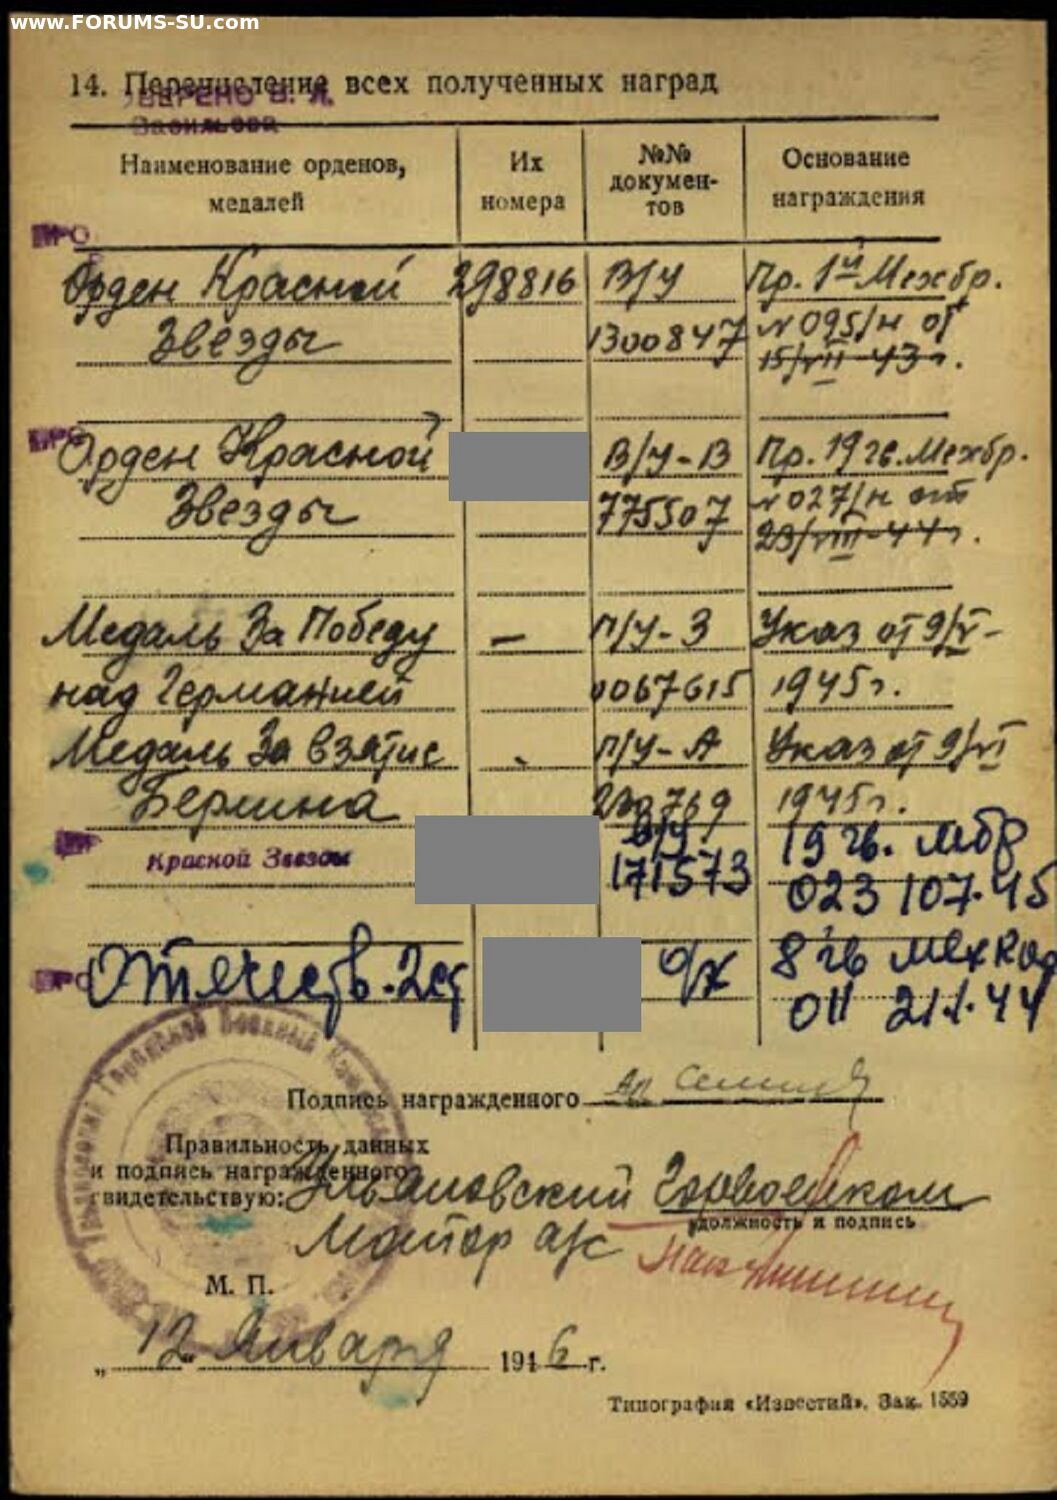 www.FORUMS-SU.com
14. Перечисление всех полученных наград
СВЕРЕНО В. Л.
Васильева
Наименование орденов, медалей
Их номера
№№ документов
Основание награждения
ПРО
Орден Красной 298816 В/У Пр. 1й Мехбр.
Звезды 1300847 № 095/н от
15/VII-43г.
ПРО
Орден Красной В/У-В Пр. 19 гв. Мехбр.
Звезды 775507 № 027/н от
23/VIII-44г.
Медаль За Победу — П/У-З Указ от 9/V-
над Германией 0067615 1945г.
Медаль За взятие П/У-А Указ от 9/VI
Берлина 1945г.
В/У 19 гв. мбр
Красной Звезды 171573 023 107.45
ПРО
Отечеств. 2ст о/к 8 гв мехкор
011 21.1.44
Подпись награжденного
Правильность данных
и подпись награжденного
свидетельствую: Ульяновский Горвоенком
должность и подпись
Майор а/с
М. П.
„12“ Января 1946 г.
Типография «Известий». Зак. 1559